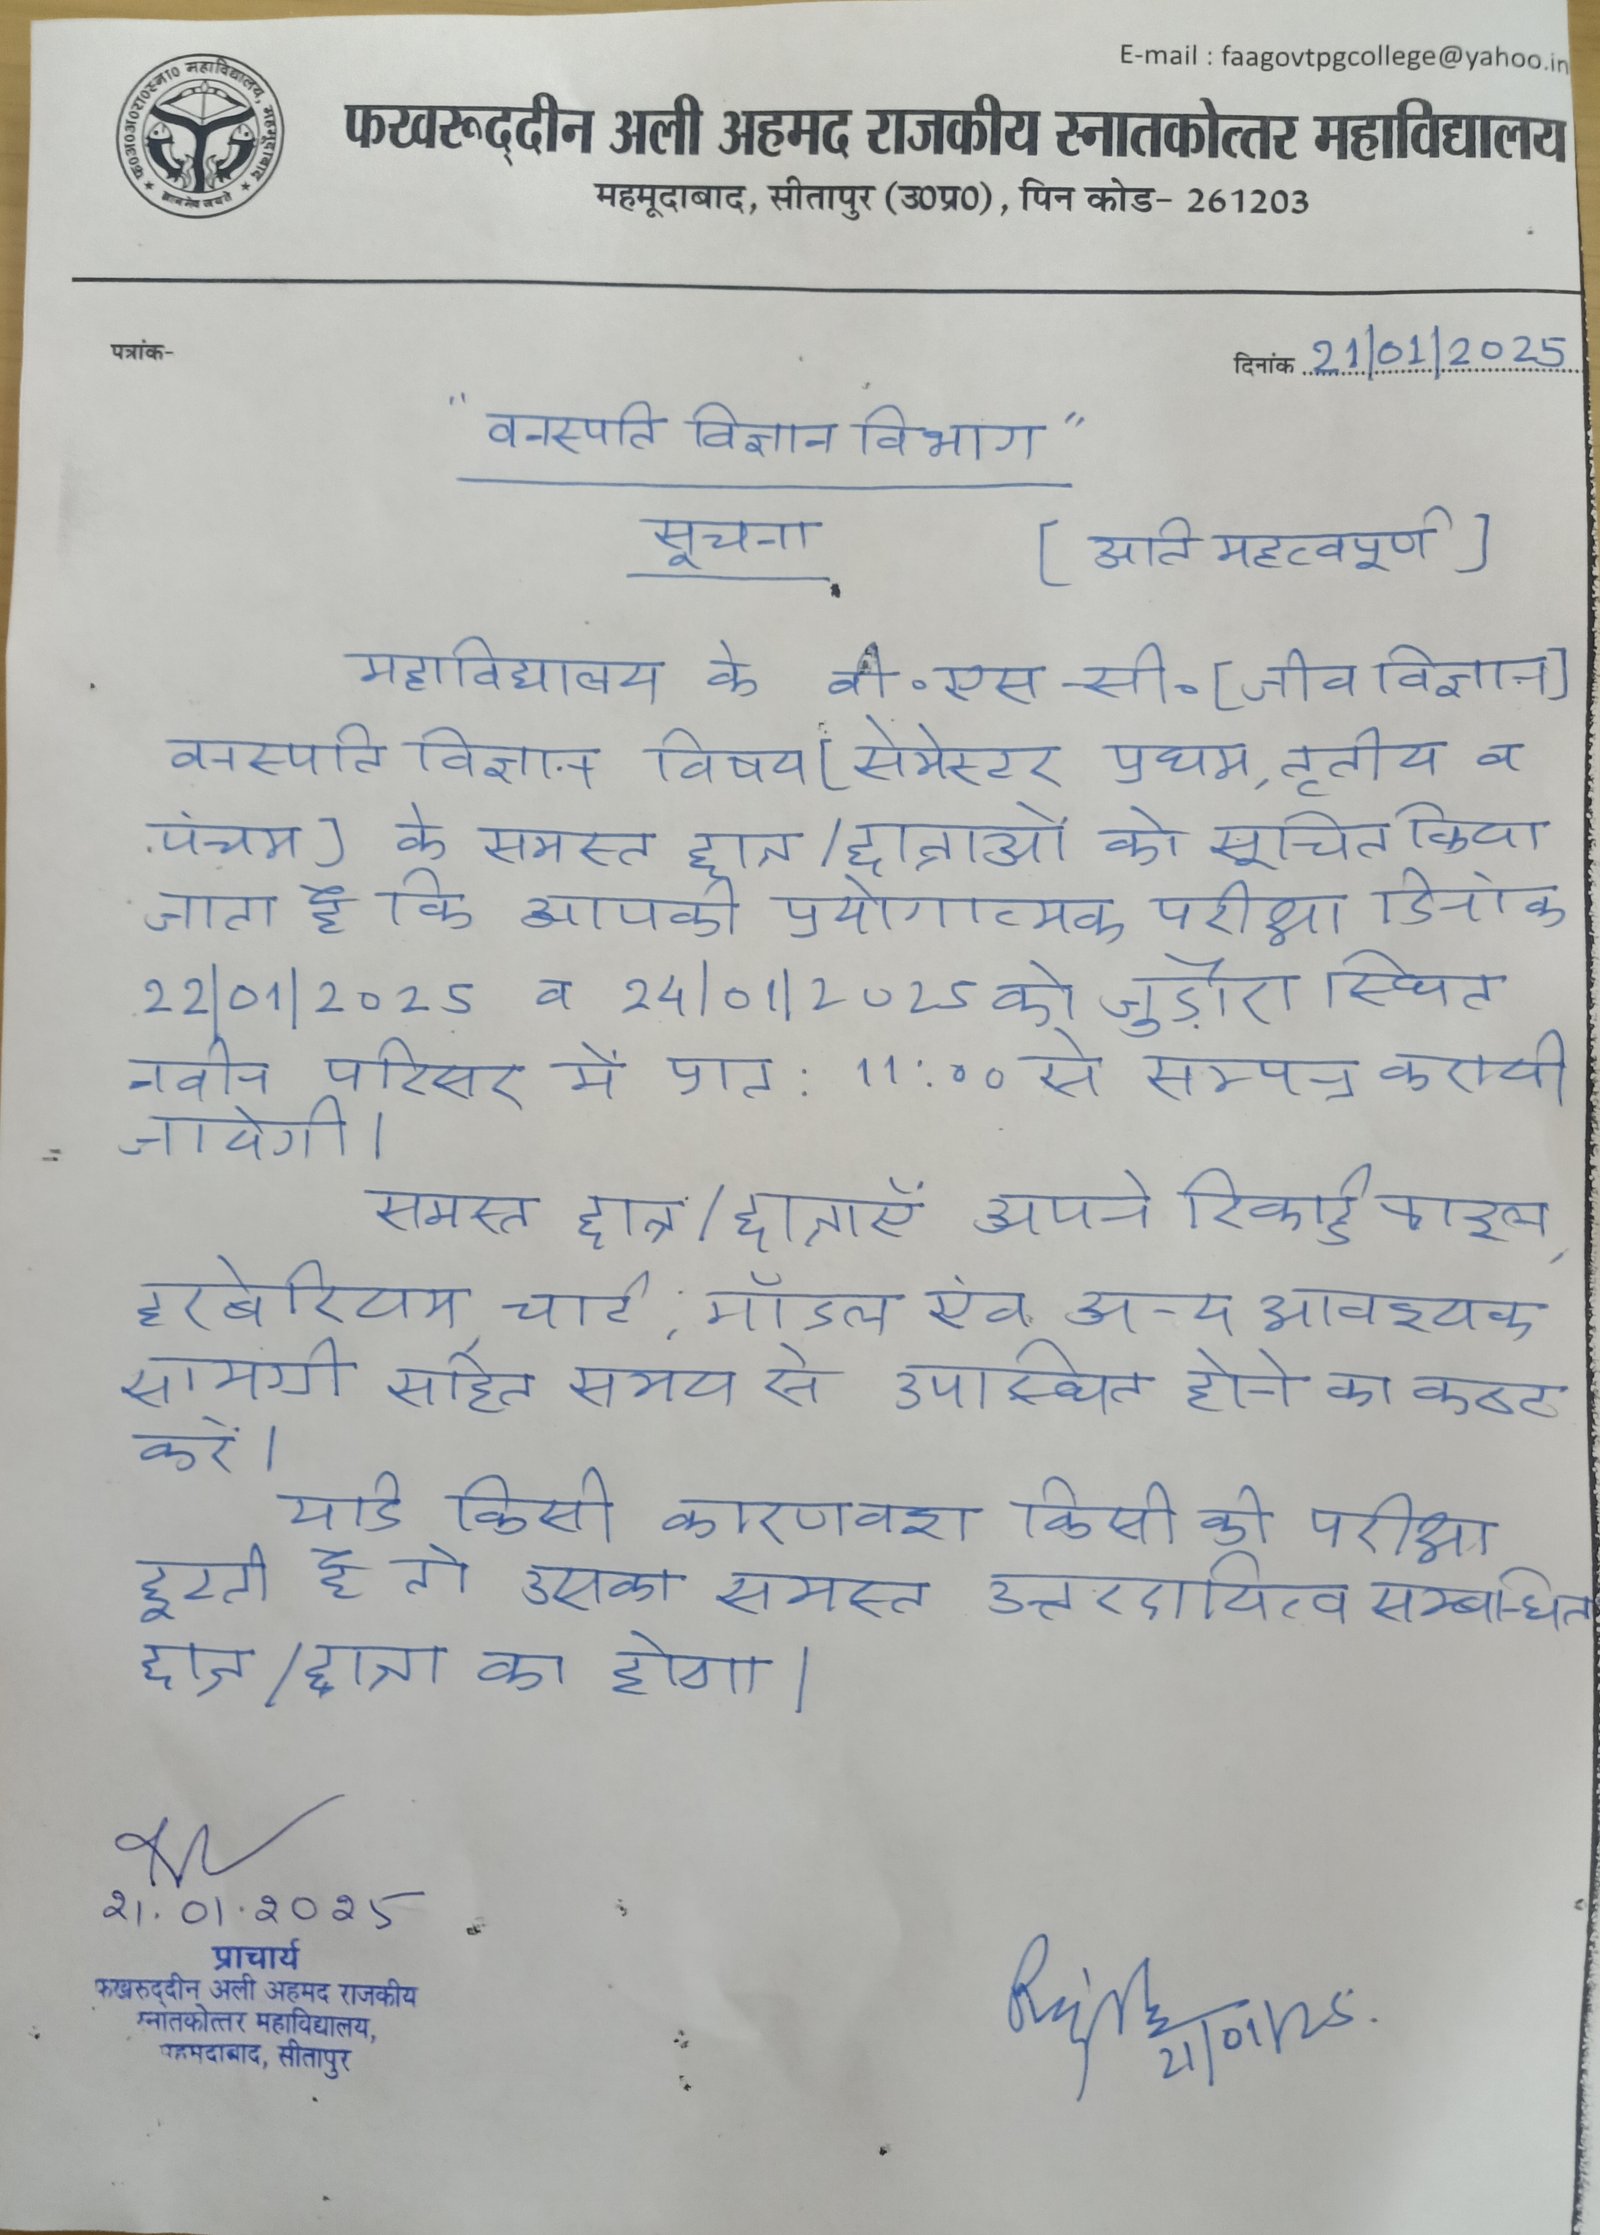 E-mail : faagovtpgcollege@yahoo.in
फ०अ०अ०रा०स्ना० महाविद्यालय, महमूदाबाद
फखरूद्दीन अली अहमद राजकीय स्नातकोत्तर महाविद्यालय
महमूदाबाद, सीतापुर (उ0प्र0), पिन कोड- 261203
पत्रांक-
दिनांक 21/01/2025
"वनस्पति विज्ञान विभाग"
सूचना [अति महत्वपूर्ण]
महाविद्यालय के बी॰एस-सी॰ [जीव विज्ञान]
वनस्पति विज्ञान विषय [सेमेस्टर प्रथम, तृतीय व
पंचम] के समस्त छात्र/छात्राओं को सूचित किया
जाता है कि आपकी प्रयोगात्मक परीक्षा दिनांक
22/01/2025 व 24/01/2025 को जुड़ौरा स्थित
नवीन परिसर में प्रात: 11:00 से सम्पन्न करायी
जायेगी।
समस्त छात्र/छात्राऐं अपने रिकार्ड फाइल,
हरबेरियम, चार्ट, मॉडल एंव अन्य आवश्यक
सामग्री सहित समय से उपस्थित होने का कष्ट
करें।
यदि किसी कारणवश किसी की परीक्षा
छूटती है तो उसका समस्त उत्तरदायित्व सम्बन्धित
छात्र/छात्रा का होगा।
21.01.2025
प्राचार्य
फखरुद्दीन अली अहमद राजकीय
स्नातकोत्तर महाविद्यालय,
महमूदाबाद, सीतापुर
21/01/25.